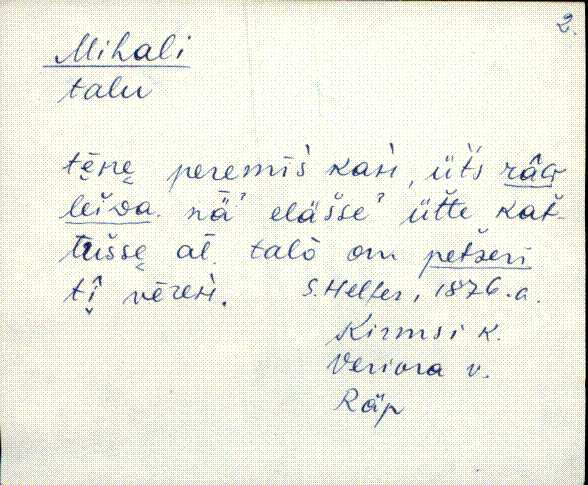 2.
Mihali
talu
tēne̮ peremìs kaśi, üt́s râǵ
leiva. nǟʾ eläs̆seʾ üt̆te kat̆-
tus̆se̮ al̄. talò om pet̆seri
tî̮ vēreśi. S. Helfer, 1876. a.
Kirmsi k.
Veriora v.
Räp